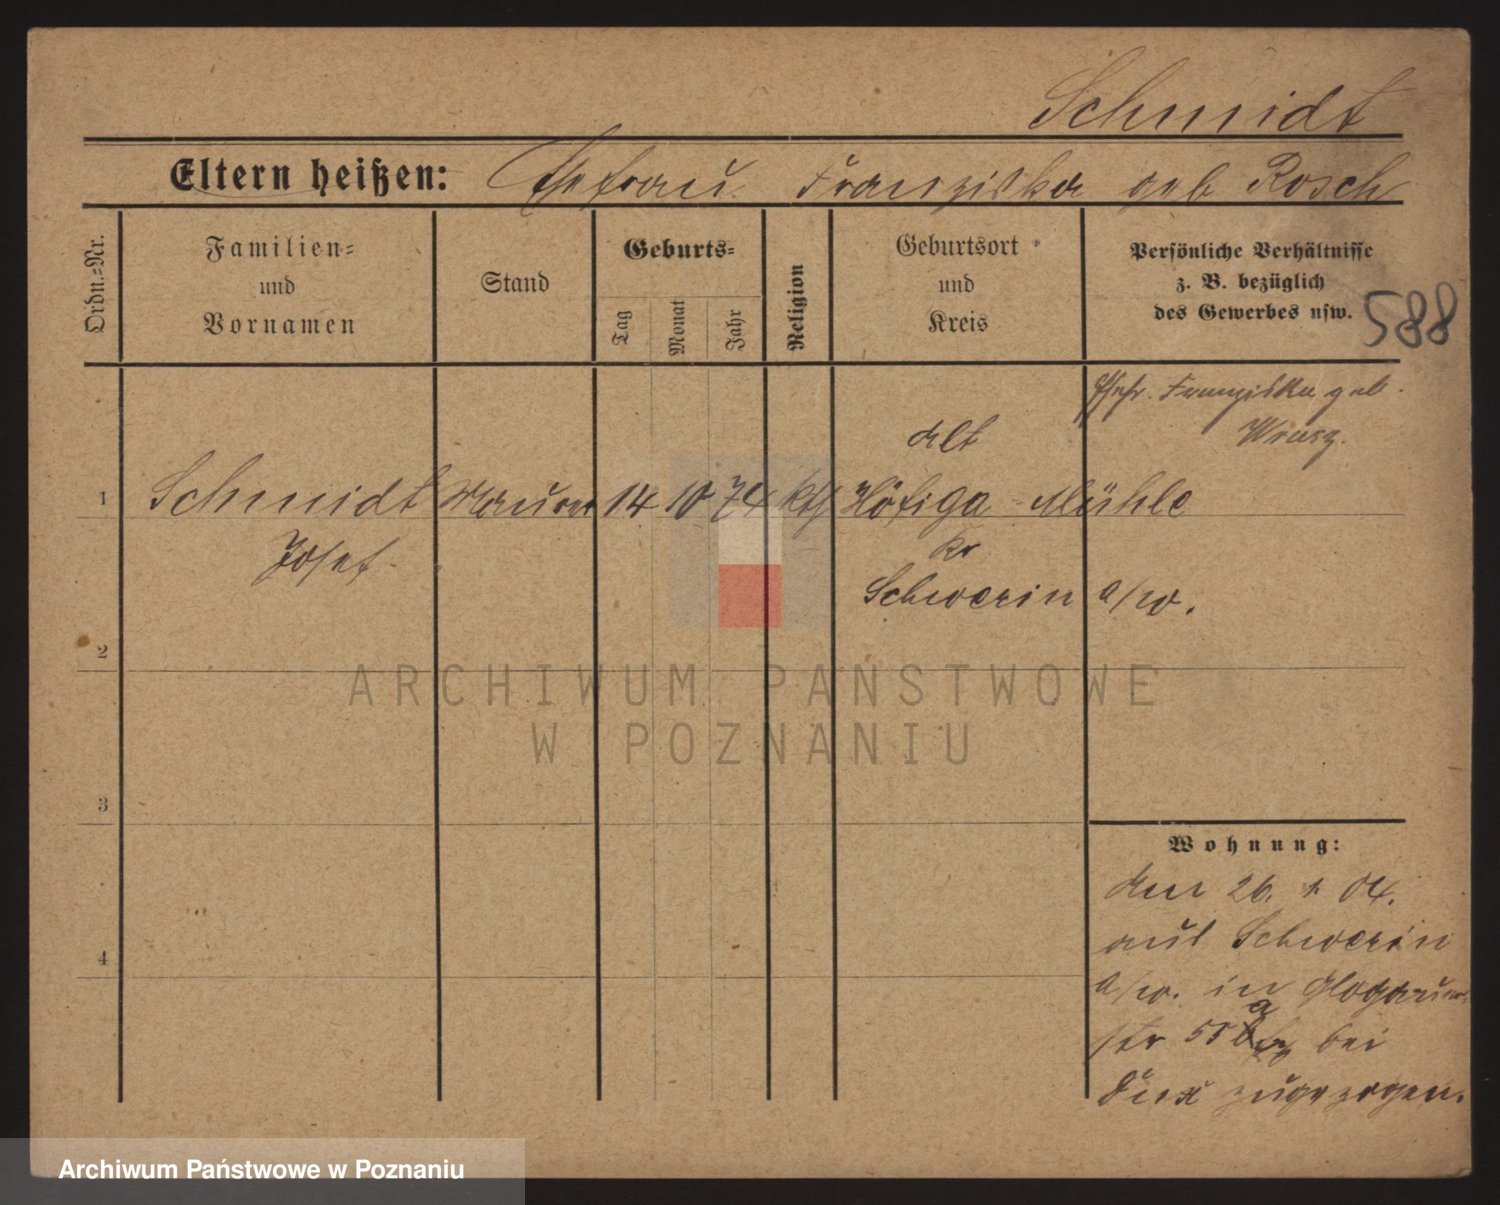 Schmidt
Eltern heißen: Ehefrau Franziska geb Rosch
Ordn.=Nr.
Familien=
und
Vornamen
Stand
Geburts=
Tag
Monat
Jahr
Religion
Geburtsort
und
Kreis
Persönliche Verhältnisse
z. B. bezüglich
des Gewerbes usw.
588
Ehefr. Franziska geb.
Alt
1 Schmidt Maurer 14 10 74 kth Höfiga - Mühle
Josef
Kr
Schwerin a/w.
2
3
4
Wohnung:
Am 26. 1. 04.
aus Schwerin
a/w. in Glogauer
str 55 a bei
zugezogen.
ARCHIWUM PAŃSTWOWE
W POZNANIU
Archiwum Państwowe w Poznaniu